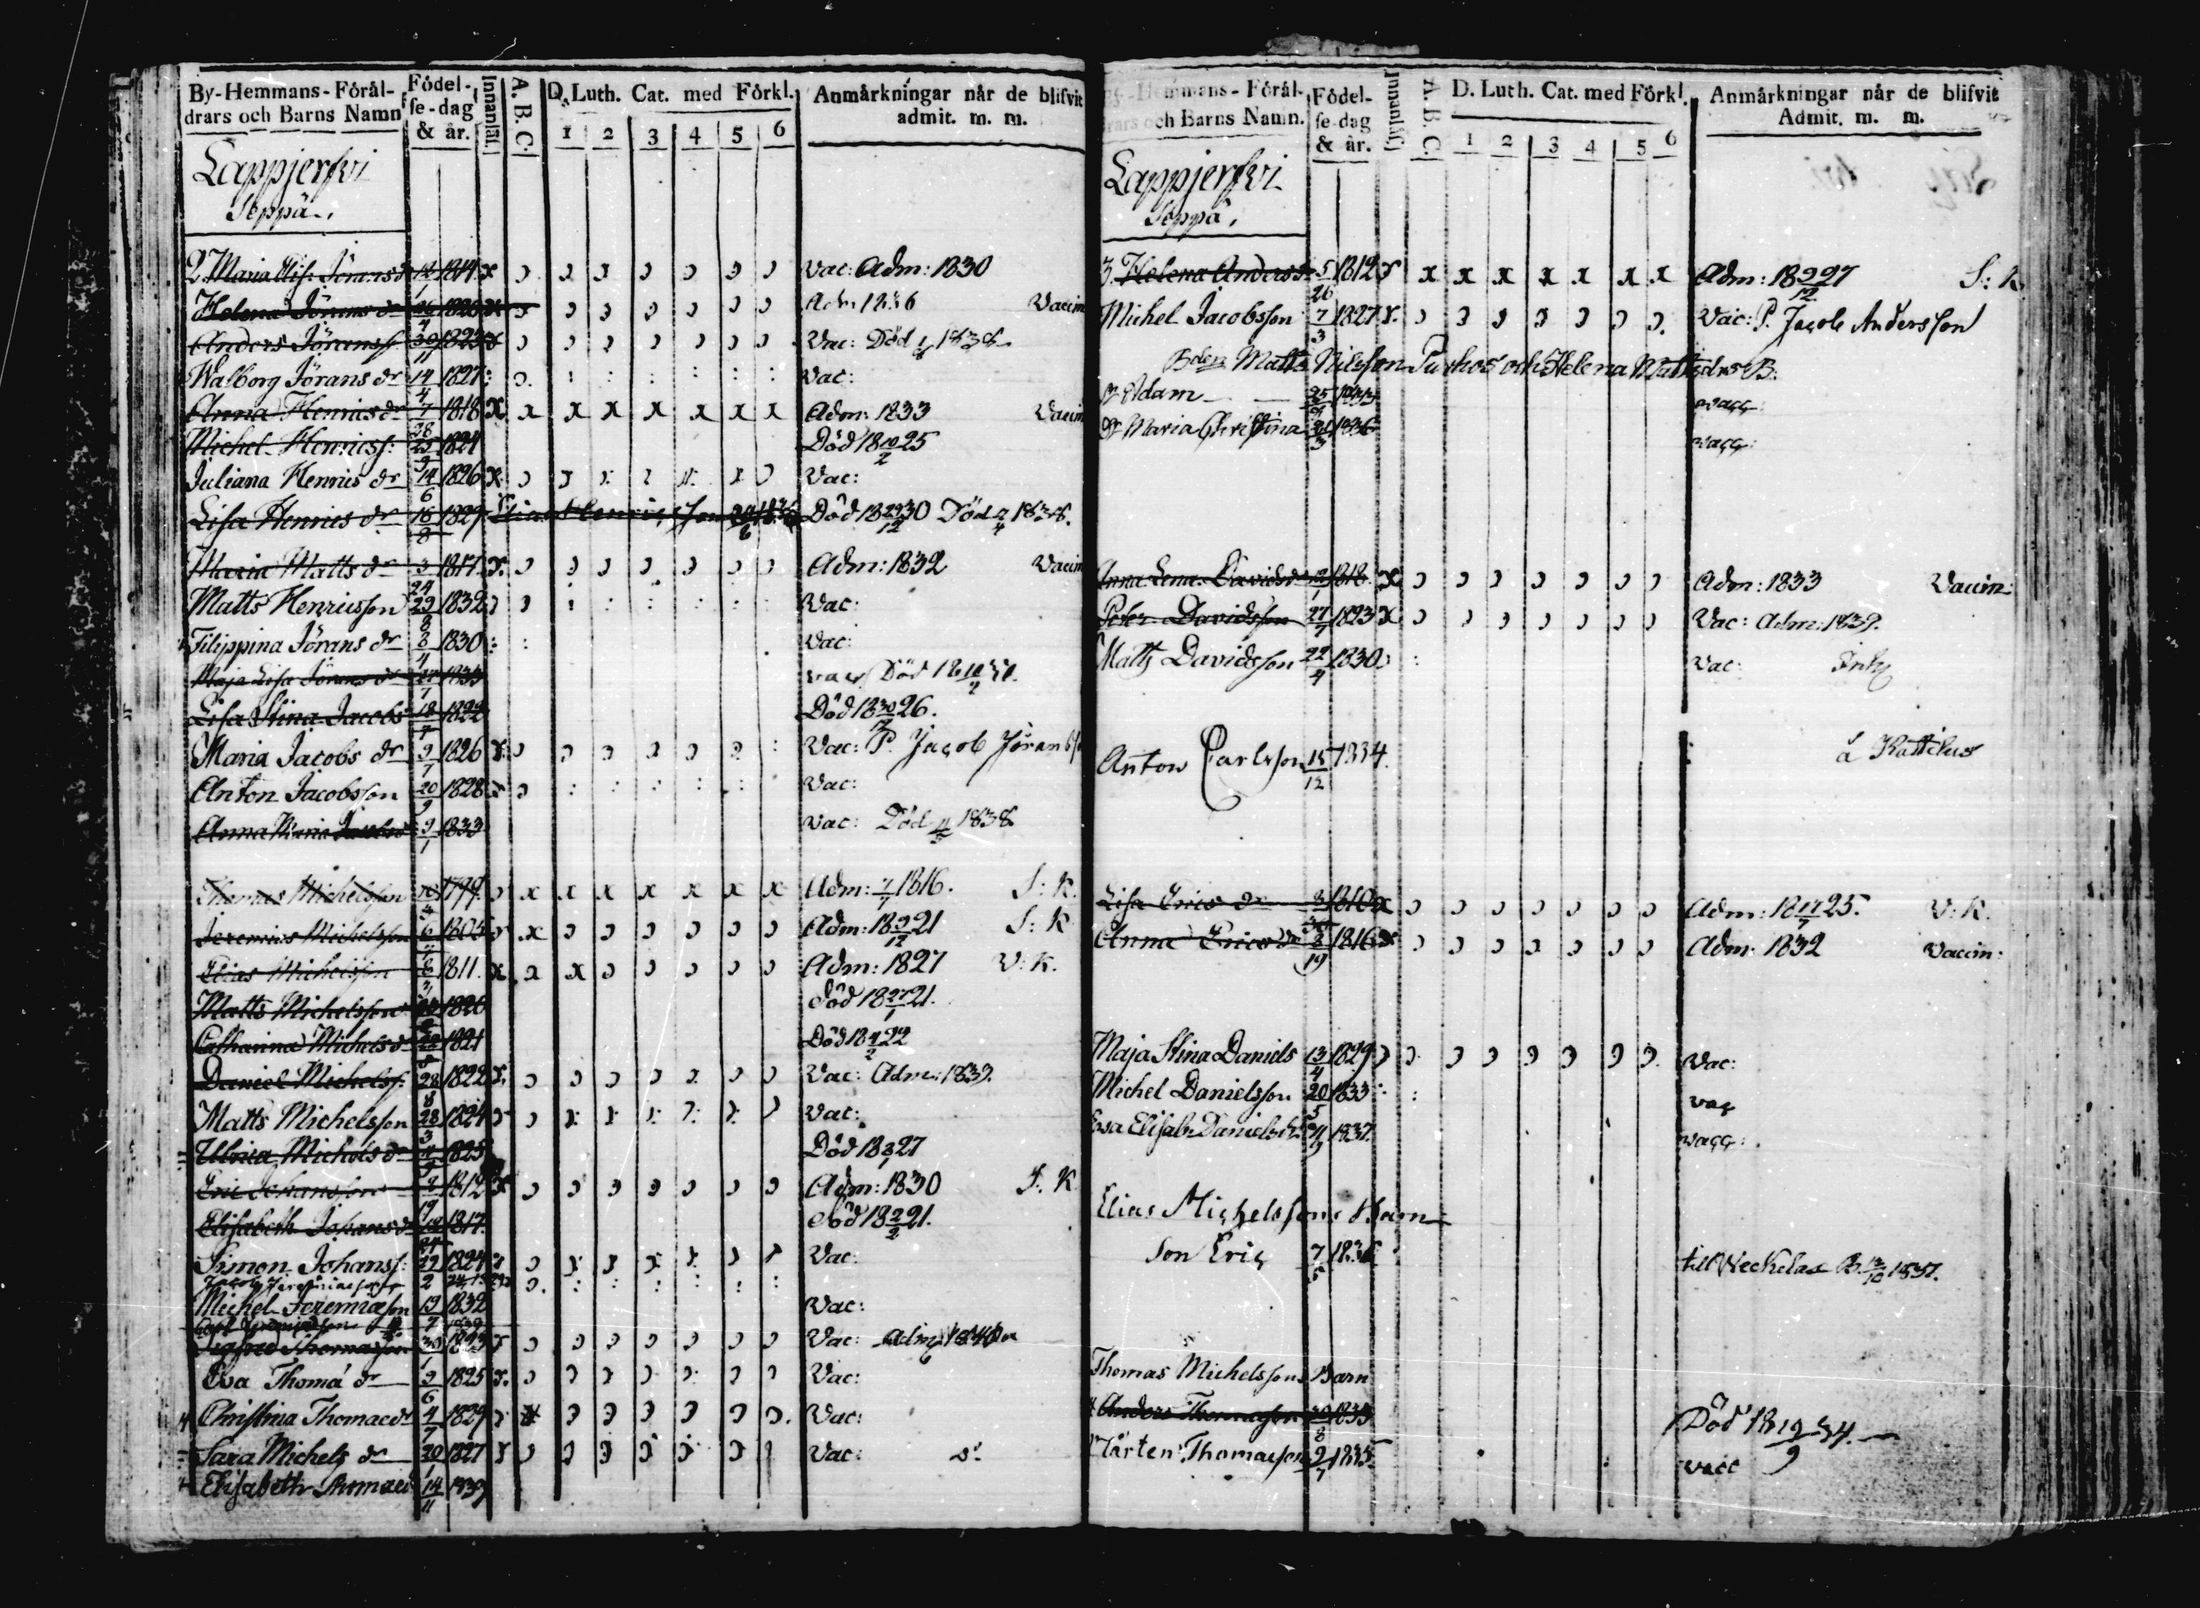 By-Hemmans-Förål-
drars och Barns Namn
Födel-
se-dag
& år.
Innanläs.
A. B. C.
D. Luth. Cat. med Förkl.
1 2 3 4 5 6
Anmårkningar når de blifvit
admit. m. m.
Lappjerfvi
Seppä.
2 Maria Lis: Jörans dr 1814 x Vac: Adm: 1830
Helena Jörans dr 1820 x Adm 1836 Vaccin
Anders Jöranss 30/11 1823 x Vac: Död 1838
Walborg Jörans dr 14/4 1827 Vac:
Anna Henrics dr 7/28 1818 x x x x x x x x Adm: 1833 Vaccin
Michel Henricss: 1824 Död 18 10/2 25
Juliana Henrics dr 14/6 1826 x Vac:
Lisa Henrics dr 16/8 1829 Elias Henricsson Död 18 29/12 30 Död 1838.
Maria Matts dr 3/24 1817 x. Adm: 1832 Vaccin
Matts Henricsson 29/8 1832 Vac:
Filippina Jörans dr 8/4 1830 Vac:
Maja Lisa Jörans dr 1833 vac Död
Lisa Stina Jacobs 18/7 1822 Död 18 30 26.
Maria Jacobs dr 9/7 1826 x Vac: P. Jacob Jöransso
Anton Jacobsson 20/9 1828 x Vac:
Anna Maria Jacobs 9/1 1833 vac: Död 1838.
Thomas Michelsson 1799 x x x x x x x Adm: 7/7 1816. S: K.
Jeremias Michelsson 6 1805 x x Adm: 18 9/12 21 S: K
Elias Michelsson 8/3 1811. x x x Adm: 1827 V: K.
Matts Michelsson 1820 Död 18 27/1 21.
Catharina Michels dr 1821 Död 18 4/2 22
Daniel Michelss: 28/8 1822 x. Vac: Adm: 1839.
Matts Michelsson 28/3 1824 Vac:
Ulrica Michels dr 1825 Död 18 3/1 27
Eric Johansson 1812 x Adm: 1830 S: K
Elisabeth Johans dr 1817. Död 18 2/2 21.
Simon Johanss: 29 1824 Vac:
Jacob Jeremiaesson
Michel Jeremiæson 19/7 1832 Vac:
Sigfred Thomasson 30/1 1823 x Vac: Adm 1840
Eva Thomæ dr 9/6 1825 x. Vac:
Christina Thomæ dr 4/7 1829 Vac:
Sara Michels dr 20/1 1827 Vac:
Elisabeth Thomæ d 14/11 1839
By-Hemmans-Förål-
drars och Barns Namn.
Födel-
se-dag
& år.
Innanläs.
A. B. C.
D. Luth. Cat. med Förkl.
1 2 3 4 5 6
Anmårkningar når de blifvit
Admit. m. m.
Lappjerfvi
Seppä.
3 Helena Anders dr 5/26 1812 x x x x x x x x Adm: 18 9/12 27 S: K
Michel Jacobsson 7/3 1827 x. Vac: P. Jacob Andersson
Matts Nilsson och Helena Matts dr B.
Adam 25 1833 vacc:
Maria Christina 21/3 1836 vacc:
Anna Lena Davids dr 1818 x Adm: 1833 Vaccin:
Peter Davidsson 27/7 1823 x Vac: Adm: 1839.
Matts Davidsson 22/4 1830 Vac:
Anton Carlsson 15/12 1834. å Kattilus
Lisa Erics dr 3 1810 x Adm: 18 17/7 25. V: K.
Anna Erics dr 8/19 1816 x Adm: 1832 Vaccin:
Maja Stina Daniels 13/4 1829 Vac:
Michel Danielsson 20/5 1833 vac
Eva Elisab: Danielsdr 1837. vacc:
Elias Michelssons Barn
Son Eric 7/5 1836 till Weckelax B. 13/10 1837.
Thomas Michelssons Barn
Anders Thomasson 20/8 1833 Död 18 19/9 34.
Mårten Thomaeson 9/7 1835 vacc